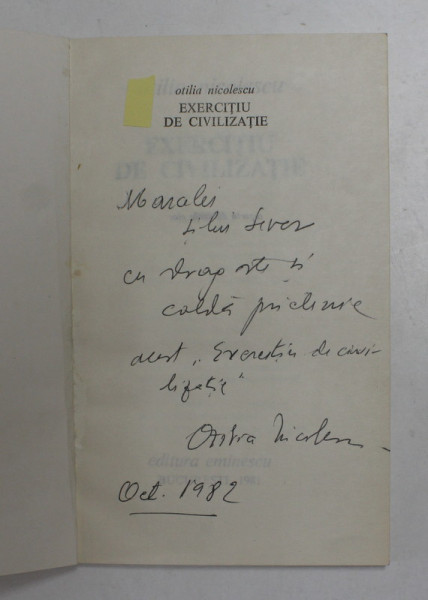 otilia nicolescu
EXERCIȚIU
DE CIVILIZAȚIE
și lui Sever
cu dragoste și
caldă prietenie
acest „Exercițiu de civi-
lizație"
Otilia Nicolescu
Oct. 1982
editura eminescu